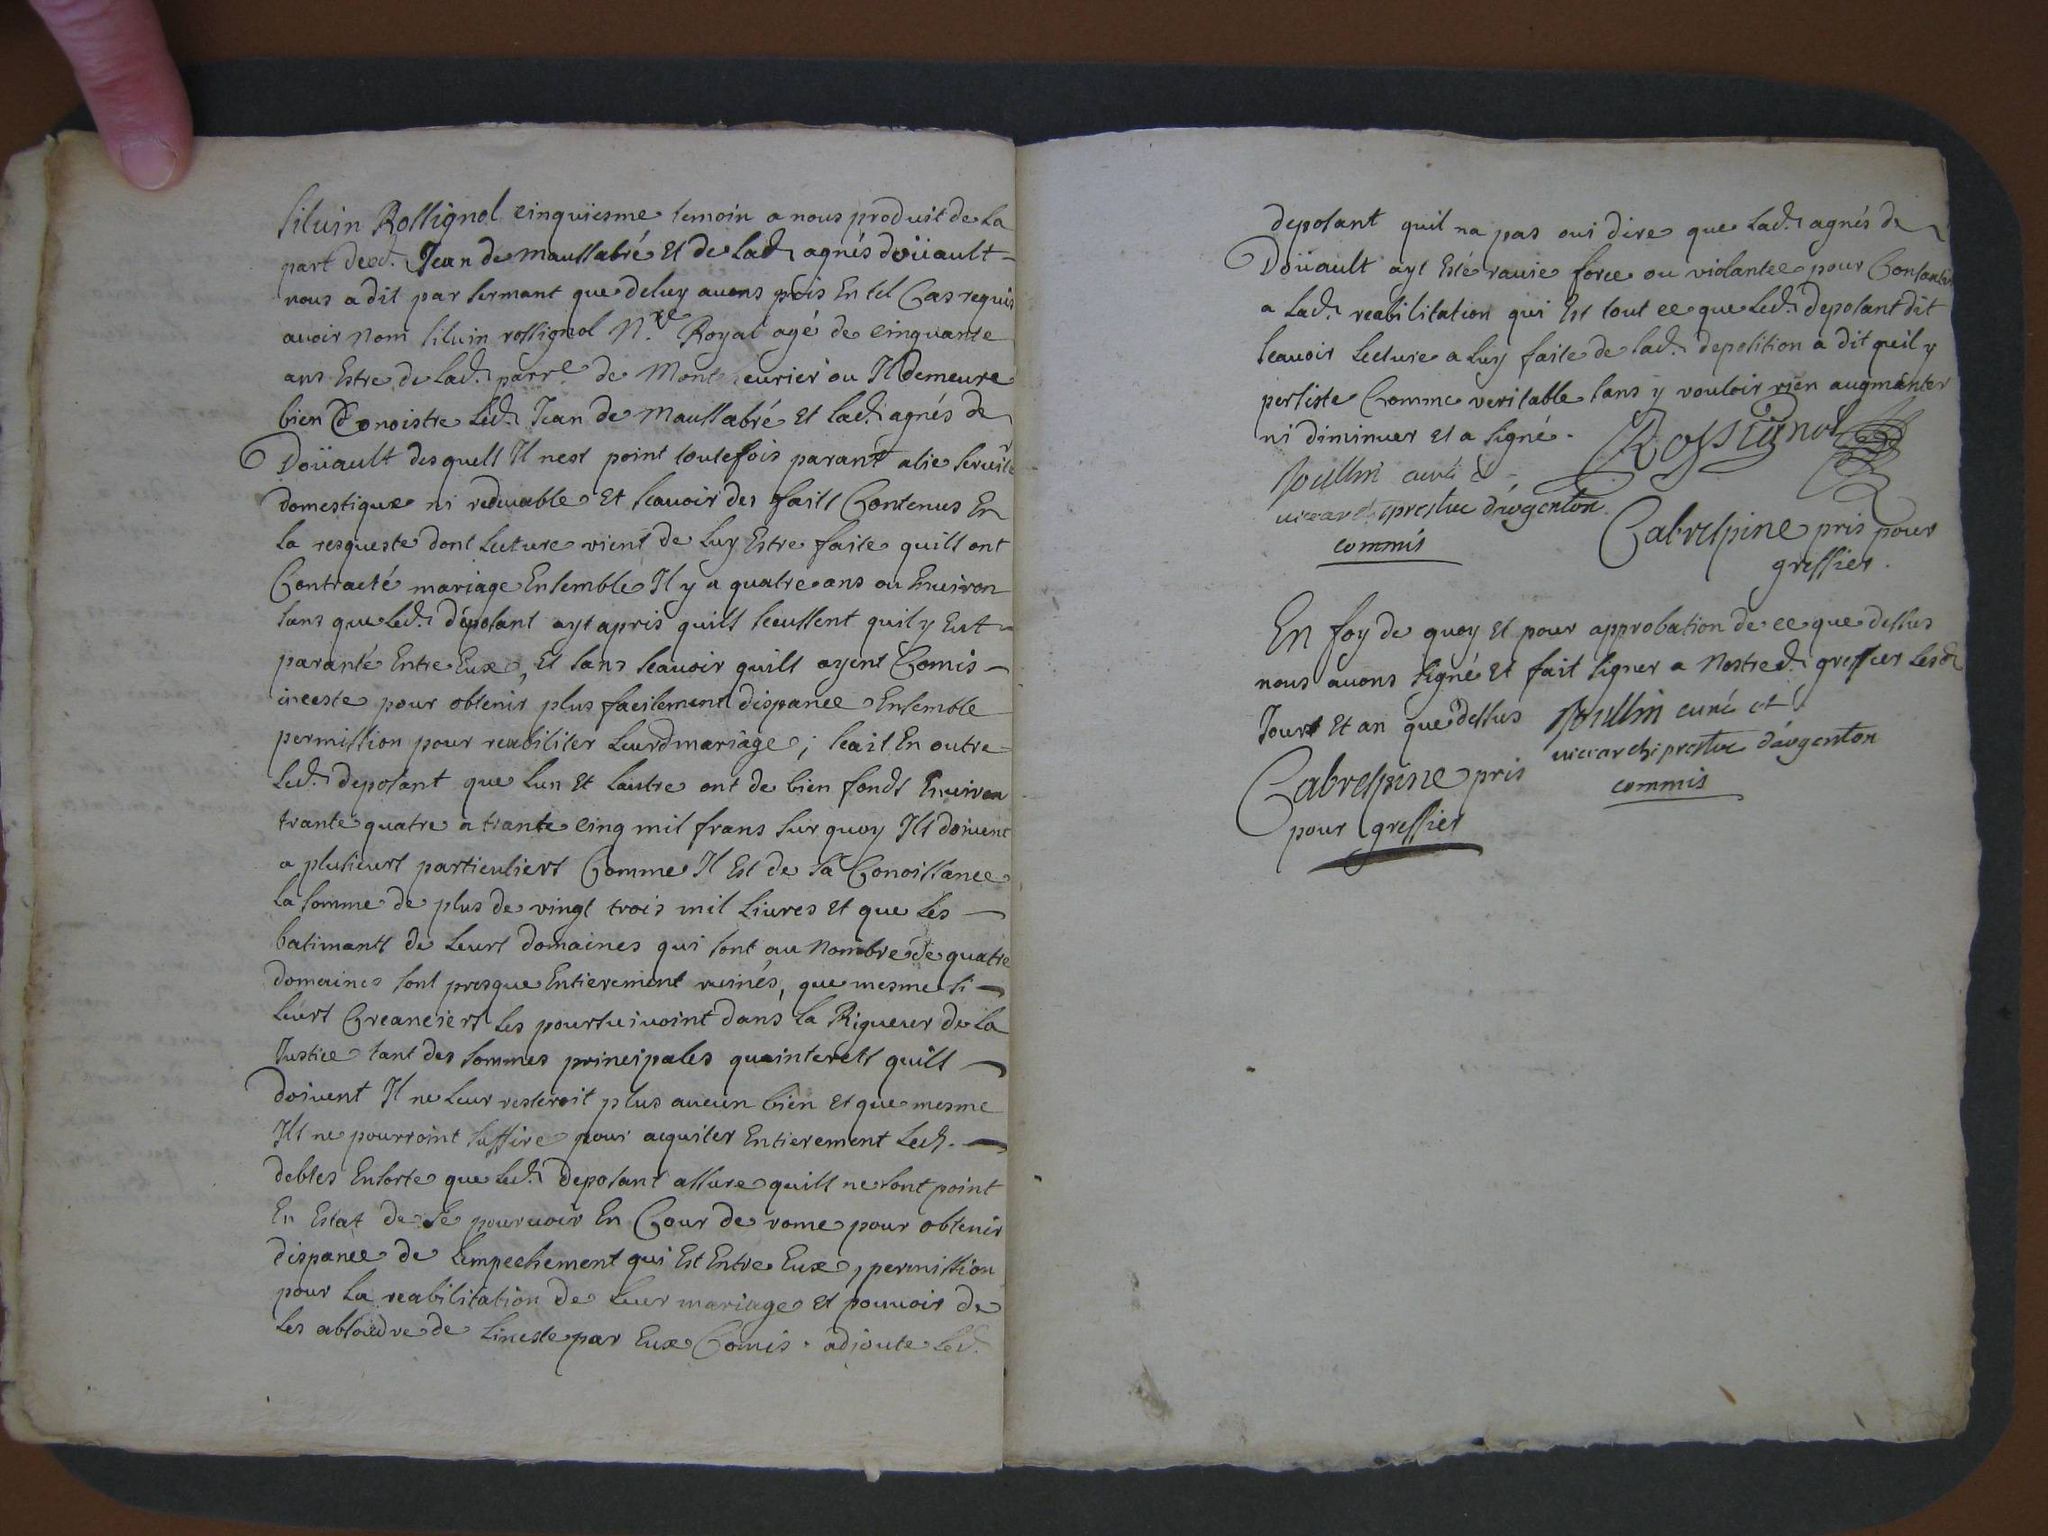 siluin Rossignol cinquiesme temoin a nous produit de La
part dud. Jean de maussabré et de Lad. agnés doüault
nous a dit par sermant que deluy auons pris En tel Cas requis
auoir nom siluin rossignol N.re Royal agé de cinquante
ans Estre de Lad. parre de ou Il demeure
bien Conoistre Led. Jean de Maussabré et Lad. agnés de
Doüault desquels Il nest point toutefois parant alié seruite
domestique ni reduable et scauoir des faits Contenus En
La resqueste dont Lecture vient de Luy Estre faite quils ont
Contracté mariage Ensemble Il y a quatre ans ou Enuiron
sans que Led. dépotant ayt apris quils sceussent quil y Eut
paranté Entre Eux, et sans scauoir quils ayent Comis
inceste pour obtenir plus facilement dispance Ensemble
permission pour reabiliter Leurd mariage; scait En outre
Led. deposant que Lun et Lautre ont de bien fonds Enuiron
trante quatre a trante cinq mil frans sur quoy Ils doiuent
a plusieurs particuliers Comme Il Est de sa Conoissance
La somme de plus de vingt trois mil Liures et que Les
batimants de Leurs domaines qui sont au Nombre de quatre
domaines sont presque Entierement ruinés, que mesme si
Leurs Creanciers Les poursuiuoint dans La Rigueur de La
Justice tant des sommes principales quainterets quils
doiuent Il ne Leur resteroit plus aucun bien et que mesme
Ils ne pourroint suffire pour acquiter Entierement Led.
debtes Ensorte que Led. deposant assure quils ne sont point
En Estat de se pouruoir En Cour de rome pour obtenir
dispance de Lempechement qui Est Entre Eux, permission
pour La reabilitation de Leur mariage et pouuoir de
Les absoudre de Lineste par Eux Comis. adjoute Led.
deposant quil na pas oui dire que Lad. agnés de
Doüault ayt Esté rauie force ou violantee pour Consantir
a Lad. reabilitation qui Est tout ce que Led. deposant dit
scauoir Lecture a Luy faite de Lad. deposition a dit quil y
persiste Comme veritable sans y vouloir rien augmanter
ni diminuer et a signé.
Rossignol
curé et
vicearchiprestre d'argenton
commis
Cabrespine pris pour
greffier.
En foy de quoy et pour approbation de ce que dessus
nous auons signé et fait signer a Nostred. greffier Lesd
Jours et an que dessus
curé et
vicearchiprestre d'argenton
commis
Cabrespine pris
pour greffier